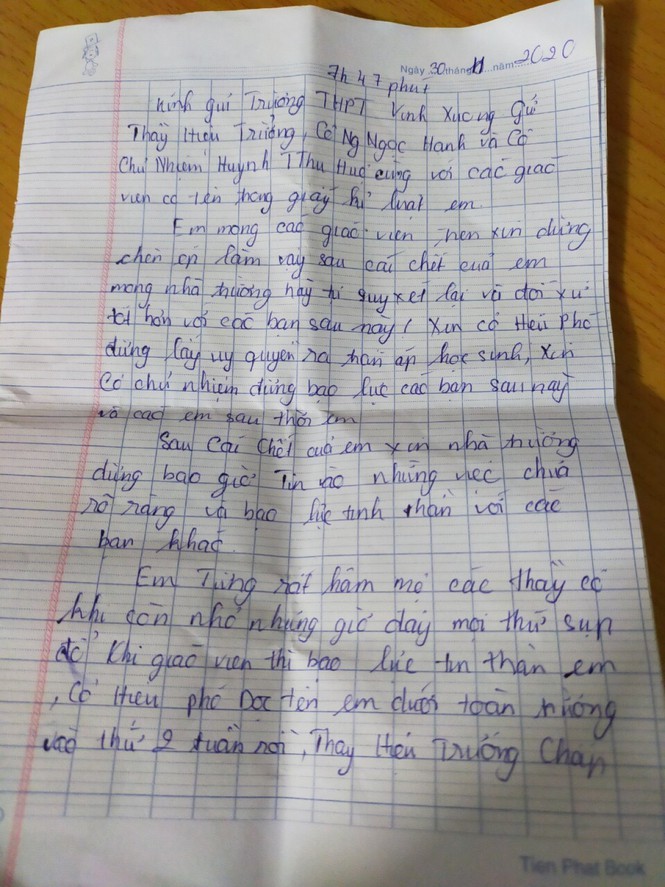 Ngày 30 tháng 11 năm 2020
7h 47 phút
Kính gửi Trường THPT Vĩnh Xương Gửi
Thầy Hiệu Trưởng, Cô Ng Ngọc Hạnh và Cô
Chủ Nhiệm Huỳnh T Thu Huệ cùng với các giáo
viên có tên trong giấy kỉ luật em.
Em mong các giáo viên trên xin đừng
chèn ép làm vậy sau cái chết của em
mong nhà trường hãy tự suy xét lại và đối xử
tốt hơn với các bạn sau này! Xin cô Hiệu Phó
đừng lấy uy quyền ra trấn áp học sinh, xin
Cô chủ nhiệm đừng bạo lực các bạn sau này
và các em sau thời em
Sau cái chết của em xin nhà trường
đừng bao giờ Tin vào những việc chưa
rõ ràng và bạo lực tinh thần với các
bạn khác.
Em Từng rất hâm mộ các thầy cô
khi còn nhỏ nhưng giờ đây mọi thứ sụp
đổ Khi giáo viên thì bạo lực tin thần em
, Cô Hiệu phó Đọc tên em dưới toàn trường
vào thứ 2 tuần rồi, Thầy Hiệu Trưởng Chấp
Tien Phat Book